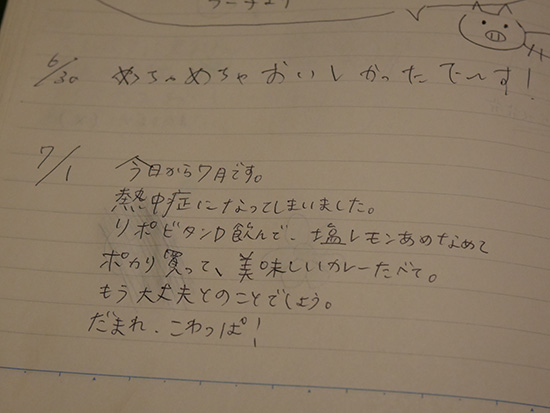 6/30 めちゃめちゃおいしかったで〜す!
7/1 今日から7月です。
熱中症になってしまいました。
リポビタンD飲んで、塩レモンあめなめて
ポカリ買って、美味しいカレーたべて。
もう大丈夫とのことでしょう。
だまれ、こわっぱ!